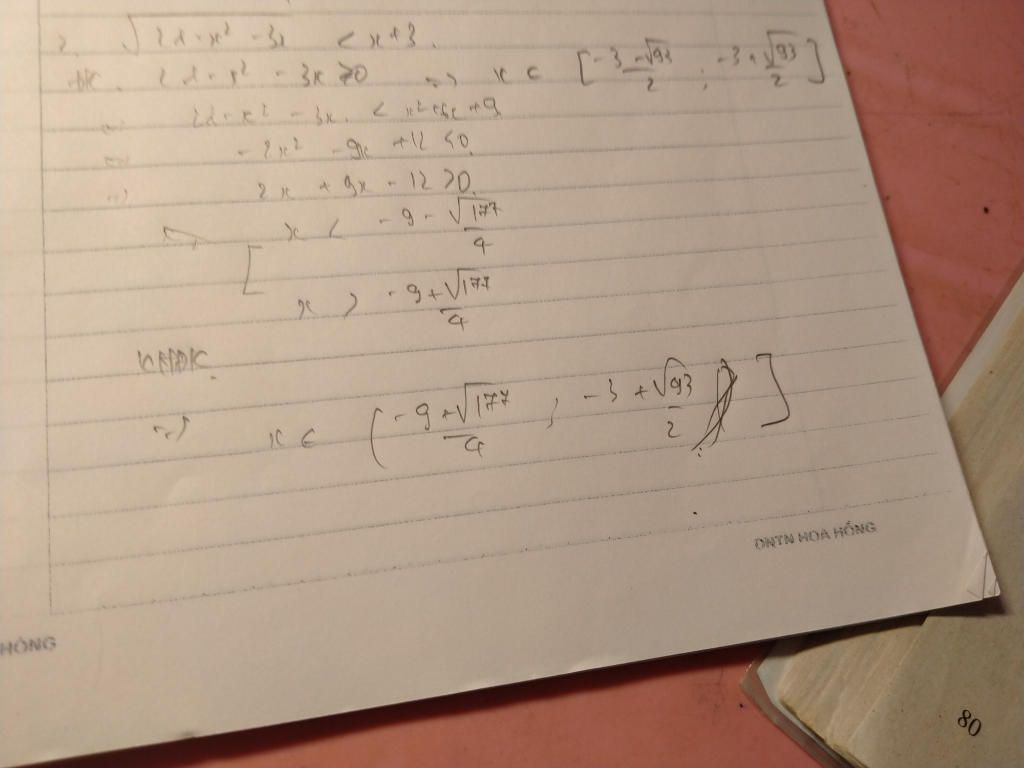 2. √(21 - x² - 3x) < x + 3.
ĐK. 21 - x² - 3x ≥ 0 => x ∈ [(-3 - √93)/2 ; (-3 + √93)/2]
21 - x² - 3x < x² + 6x + 9
- 2x² - 9x + 12 < 0.
2x + 9x - 12 > 0.
[ x < (-9 - √177)/4
x > (-9 + √177)/4
KHĐK.
=> x ∈ ((-9 + √177)/4 ; (-3 + √93)/2]
DNTN HOA HỒNG
HỒNG
80